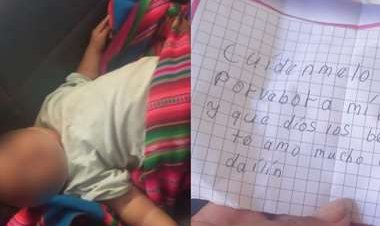 Cuidenmelo
Porvabora mi
y que dios los b
te amo mucho
dailin